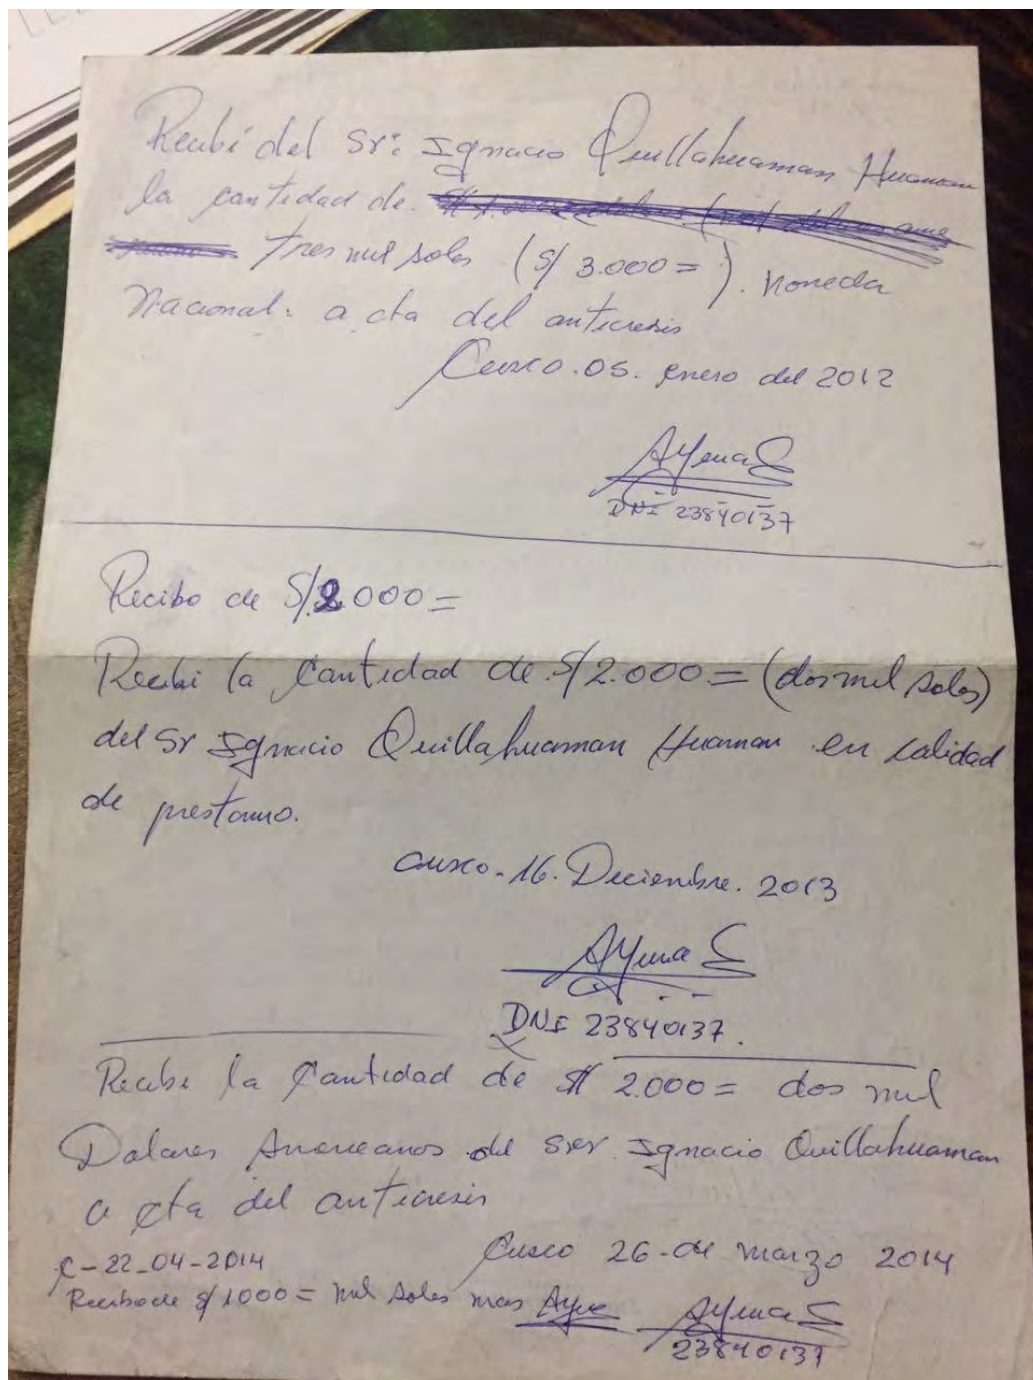 Recibí del Sr: Ignacio Quillahuaman Huaman
la cantidad de
tres mil soles (S/ 3.000=). Moneda
Nacional. a cta del anticresis
Cusco. 05. enero del 2012
DNI 23840137
Recibo de S/ 2.000=
Recibi la Cantidad de S/ 2.000= (dos mil soles)
del Sr Ignacio Quillahuaman Huaman en calidad
de prestamo.
Cusco-16. Deciembre. 2013
DNI 23840137.
Recibi la Cantidad de $ 2.000= dos mil
Dolares Americanos del Ser Ignacio Quillahuaman
a cta del anticresis
C-22-04-2014
Cusco 26-de marzo 2014
Recibo de S/ 1000= mil soles mas
23840137